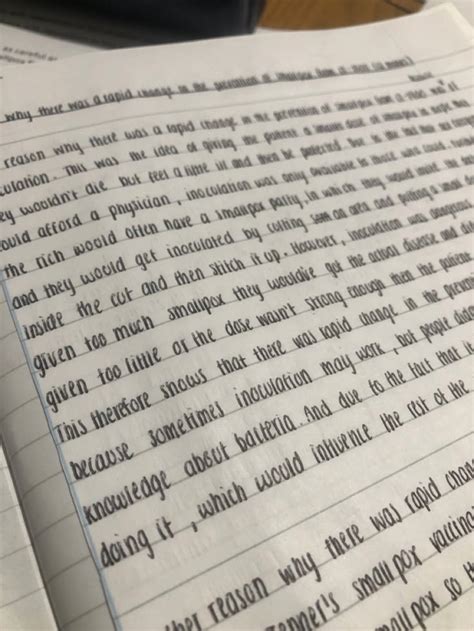 Why there was a rapid change in the prevention of smallpox from
reason why there was a rapid change in the prevention of smallpox from
culation. This was the idea of giving the patient a smaller dose of smallpox to
ey wouldn't die but feel a little ill and then be protected. But
ould afford a physician, inoculation was only available to those who could
the rich would often have a smallpox party, in which they would
and they would get inoculated by cutting arm and putting a small
inside the cut and then stitch it up. However, inoculation was dangerous
given too much smallpox they wouldive got the actual disease and
given too little or the dose wasn't strong enough then the patients
This therefore shows that there was rapid change in the preven
because sometimes inoculation may work, but people didn
knowledge about bacteria. And due to the fact that it
doing it, which would influence the rest of the
ther reason why there was rapid chan
Jenner's smallpox vaccina
pox so th